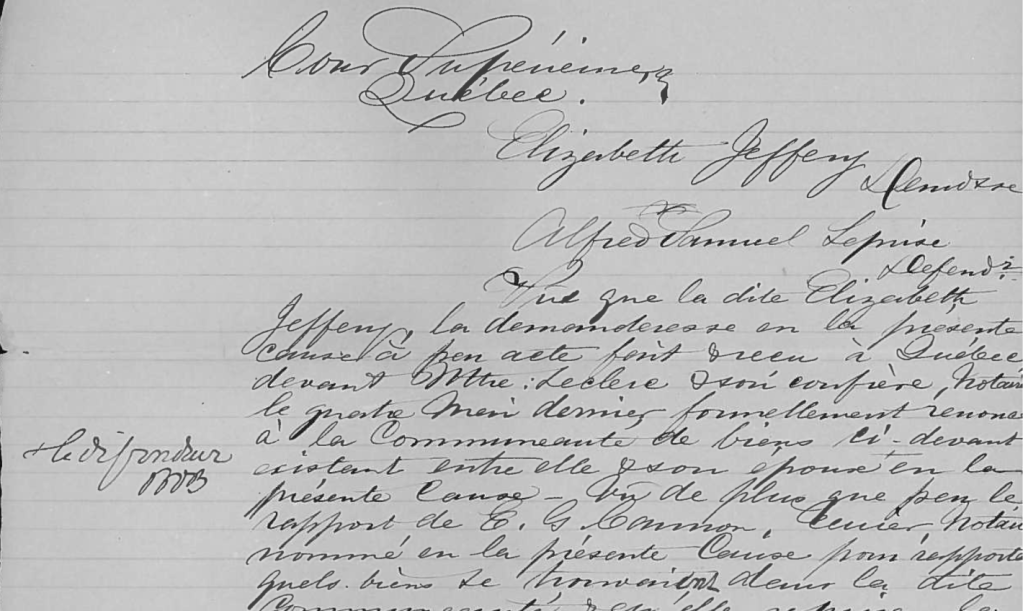 Cour Supérieure,
Québec.
Elizabeth Jeffery
Demdsse
vs
Alfred Samuel Leprise
Defendr
Vue que la dite Elizabeth
Jeffery, la demanderesse en la présente
cause à par acte fait & reçu à Québec
devant Mtre: Leclerc & son confrère, Notai
le quatre Mai dernier, formellement renonc
à la Communeauté de biens ci-devant
existant entre elle & son époux en la
+ le défendeur
présente Cause - Vu de plus que par le
rapport de E. G. Cannon, Ecuier, Notai
nommé en la présente Cause pour rapporte
quels biens se trouvaient dans la dite